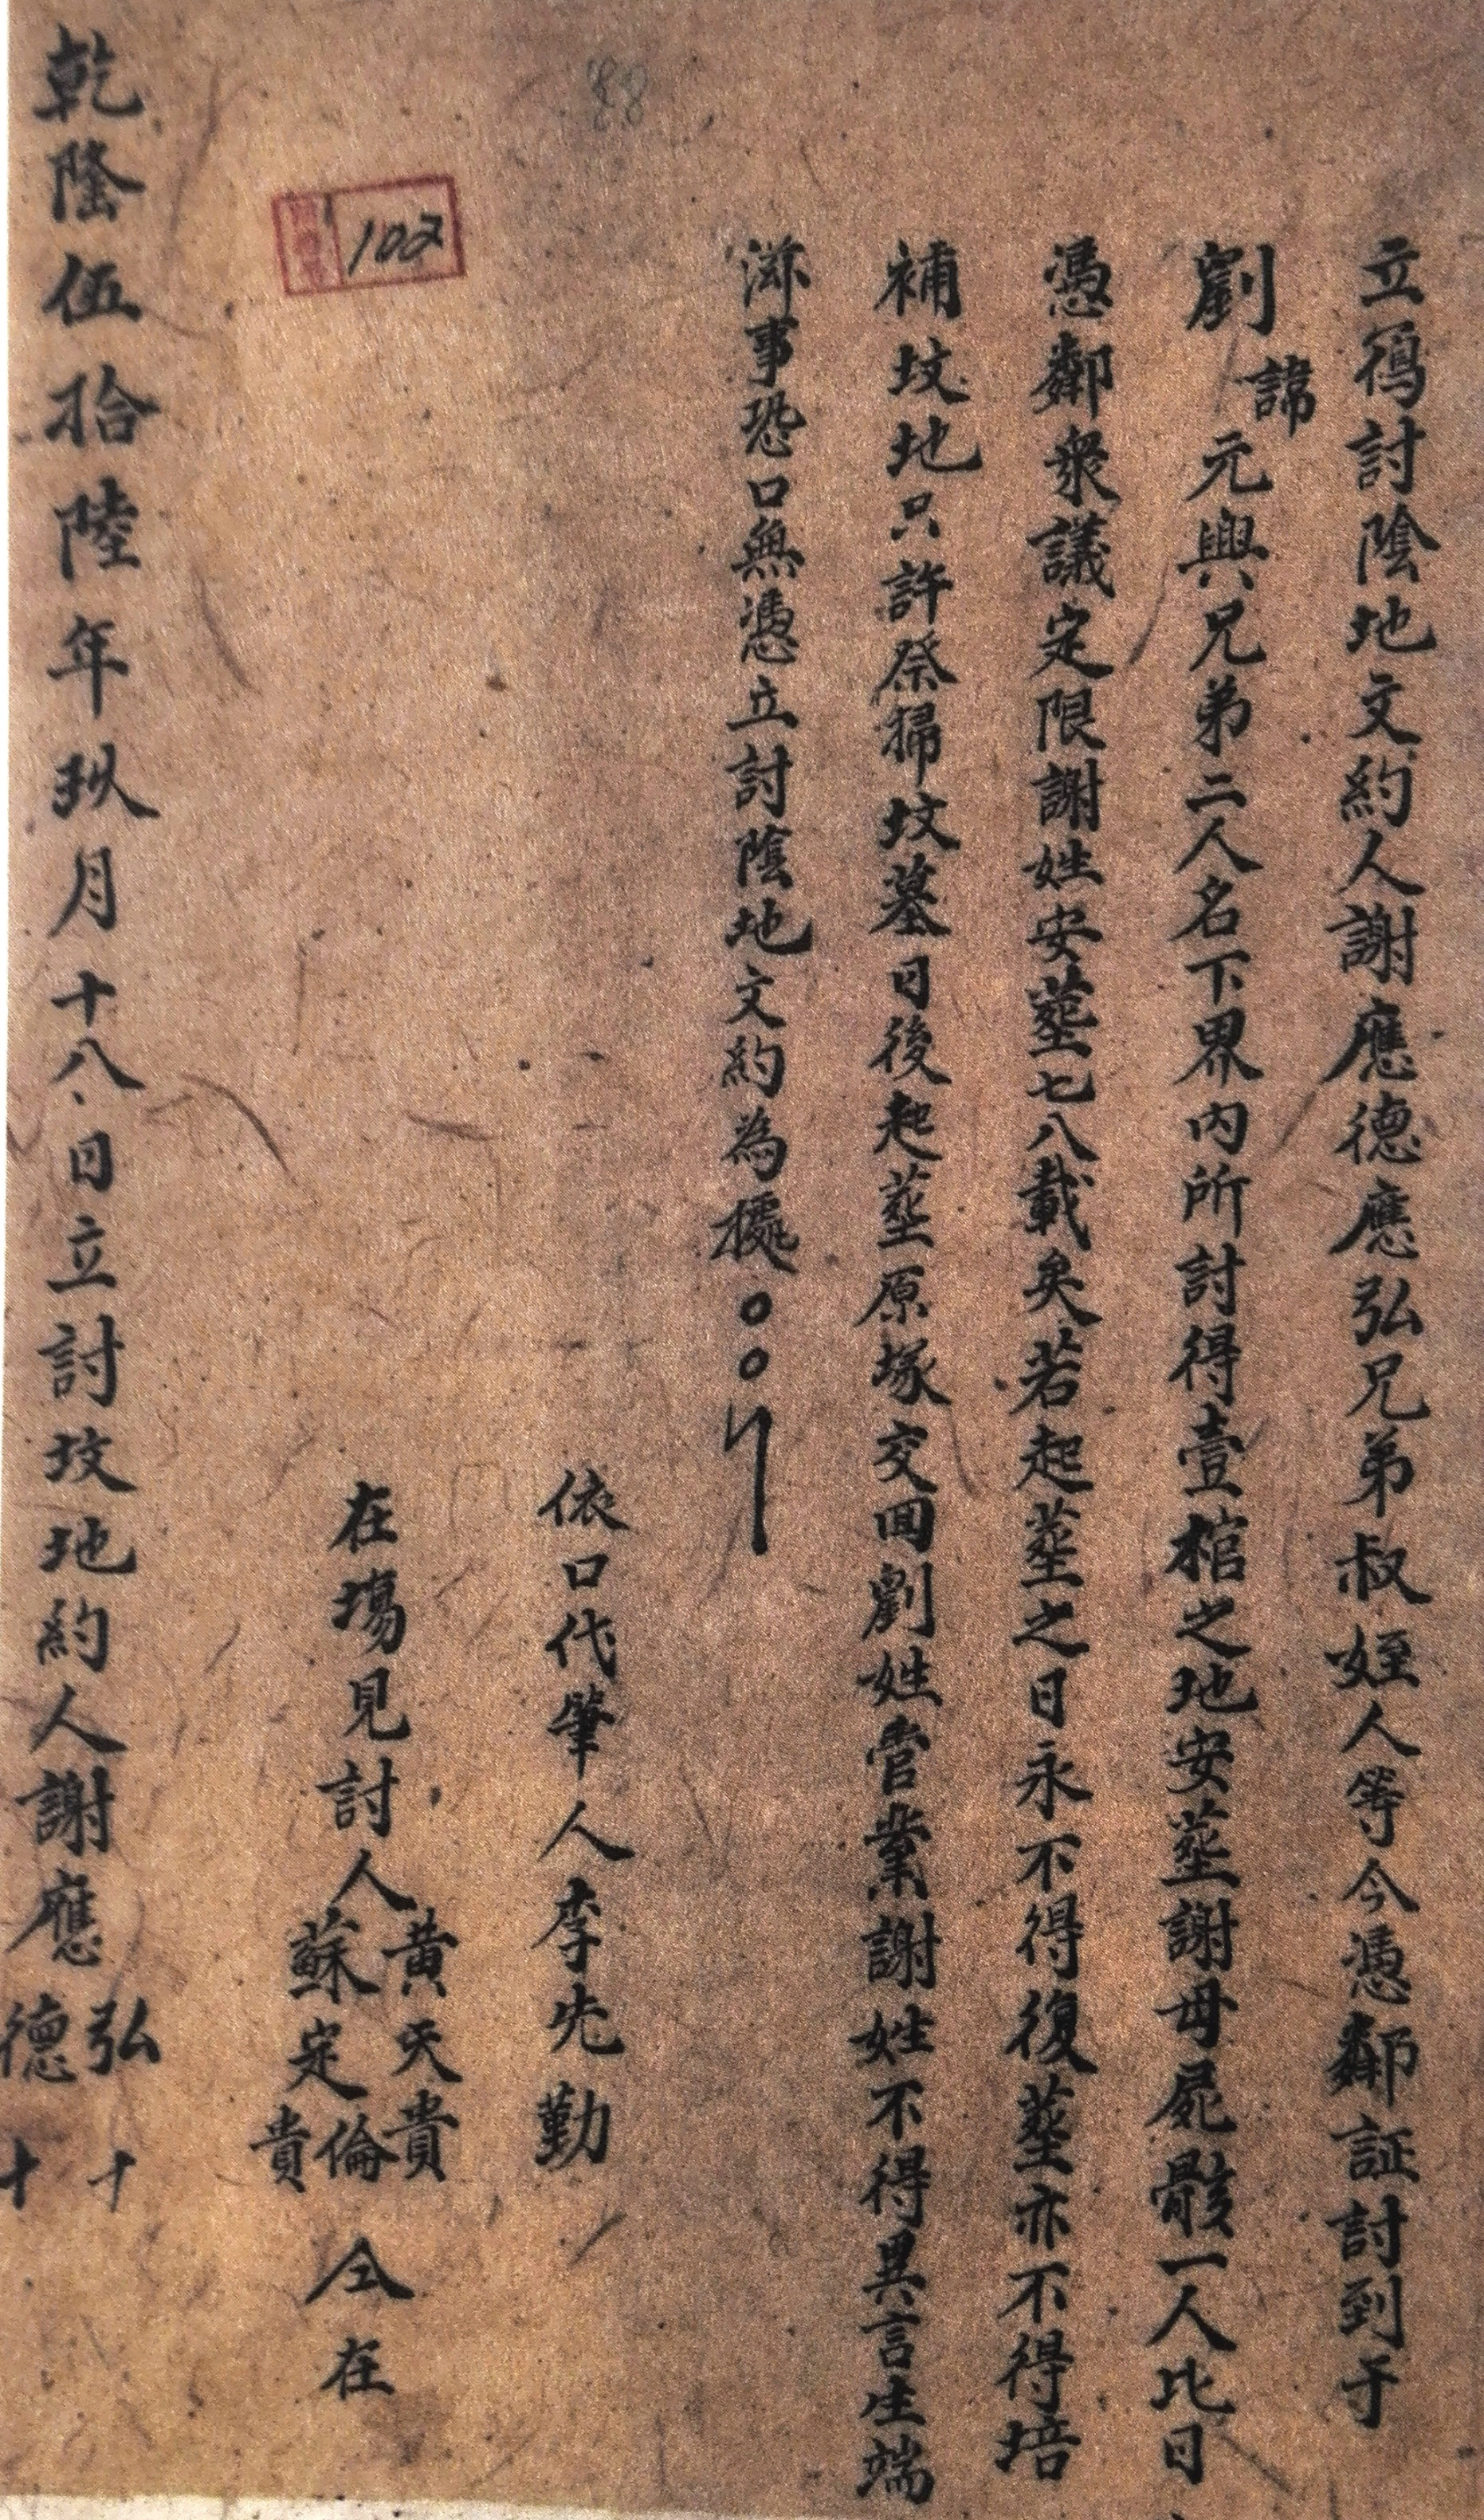 立𭶑討陰地文約人謝應德應弘兄弟叔姪人等今憑鄰証討到于
劉諱元興兄弟二人名下界内所討得壹棺之地安塟謝母屍骸一人比日
憑鄰衆議定限謝姓安塟七八載矣若起塟之日永不得復塟亦不得培
補坟地只許祭掃坟墓日後起塟原塚交囬劉姓管業謝姓不得異言生端
滋事恐口無憑立討陰地文約為㩀
依口代肇人李先勤
在塲見討人黄天貴蘇定倫貴仝在
乾隆伍拾陸年玖月十八日立討坟地約人謝應弘十德十
102
88